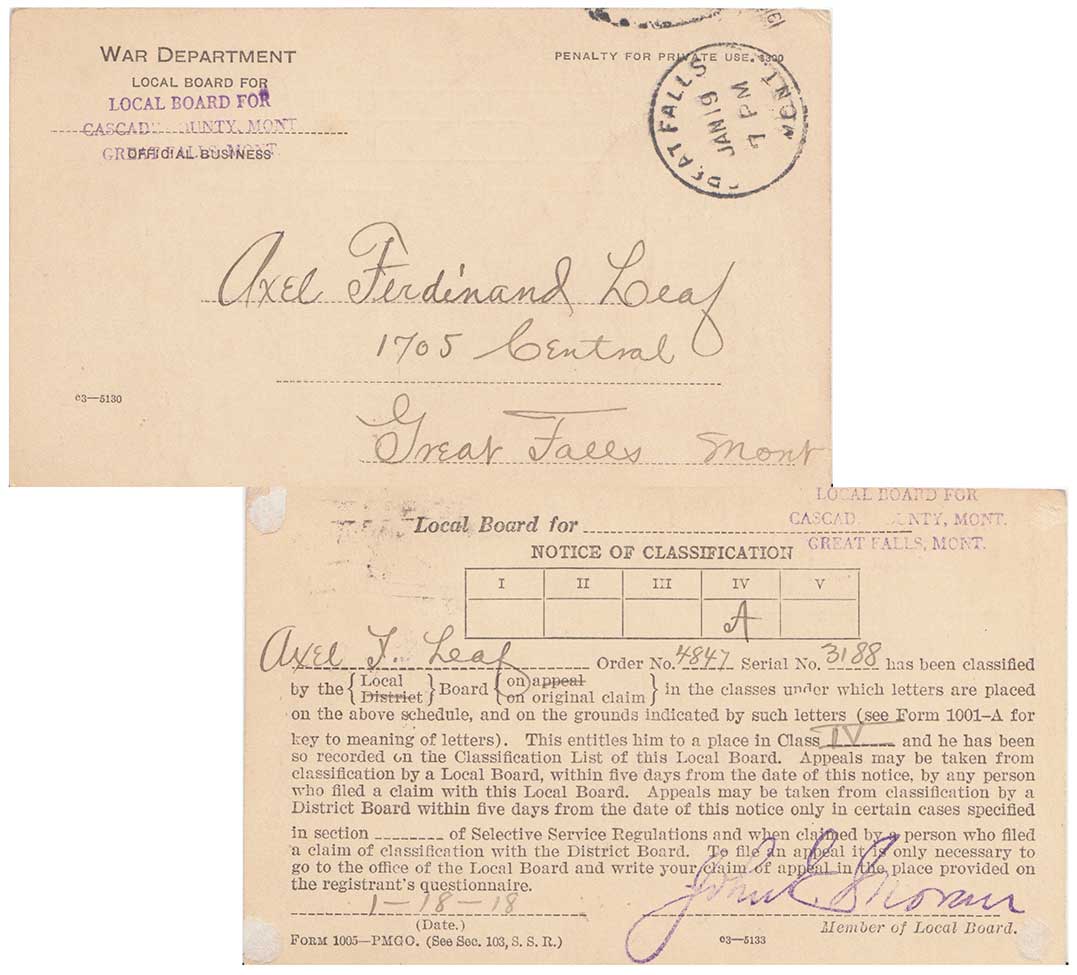 WAR DEPARTMENT
LOCAL BOARD FOR
LOCAL BOARD FOR
CASCAD UNTY, MONT
GREAT FALLS, MONT.
OFFICIAL BUSINESS
PENALTY FOR PRIVATE USE, $300
GREAT FALLS MONT
JAN 19
7 PM
Axel Ferdinand Leaf
1705 Central
c3—5130
Great Falls Mont
LOCAL BOARD FOR
CASCAD UNTY, MONT.
GREAT FALLS, MONT.
Local Board for
NOTICE OF CLASSIFICATION
I II III IV V
A
Axel F. Leaf Order No. 4847 Serial No. 3188 has been classified
by the { Local District } Board { on appeal on original claim } in the classes under which letters are placed
on the above schedule, and on the grounds indicated by such letters (see Form 1001–A for
key to meaning of letters). This entitles him to a place in Class IV and he has been
so recorded on the Classification List of this Local Board. Appeals may be taken from
classification by a Local Board, within five days from the date of this notice, by any person
who filed a claim with this Local Board. Appeals may be taken from classification by a
District Board within five days from the date of this notice only in certain cases specified
in section ________ of Selective Service Regulations and when claimed by a person who filed
a claim of classification with the District Board. To file an appeal it is only necessary to
go to the office of the Local Board and write your claim of appeal in the place provided on
the registrant's questionnaire.
1-18-18
(Date.)
John Moran
Member of Local Board.
FORM 1005—PMGO. (See Sec. 103, S. S. R.)
c3—5133